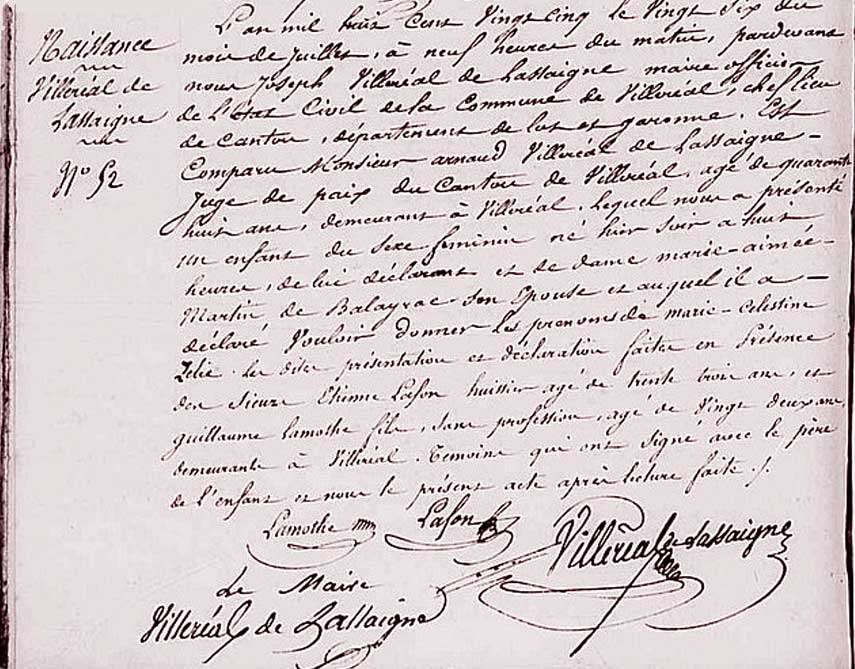 Naissance
Villeréal de
Lassaigne
N.º 52
L'an mil huit Cent Vingt Cinq le Vingt Six du
mois de juillet, à neuf heures du matin, pardevant
nous Joseph Villeréal de Lassaigne maire officier
de L'état Civil de la Commune de Villeréal, chef lieu
de Canton, département de lot et garonne. Est
Comparu Monsieur arnaud Villeréal de Lassaigne -
Juge de paix du Canton de Villeréal, agé de quarante
huit ans, demeurant à Villeréal, lequel nous a présenté
un enfant du sexe feminin né hier soir a huit
heures, de lui déclarant et de dame marie-aimée -
Martin de Balayrac son Epouse et auquel il a -
déclaré Vouloir donner les prenoms de marie-Celestine
Zelie. les dites présentation et déclaration faites en Présence
des sieurs Etienne Lafon huissier agé de trente trois ans, et
guillaume Lamothe fils, sans profession, agé de Vingt deux ans,
demeurants à Villeréal. Temoins qui ont signé avec le père
de l'enfant et nous le présent acte après lecture faite ./.
Lamothe Lafon
Villeréal de Lassaigne
Le Maire
Villeréal de Lassaigne